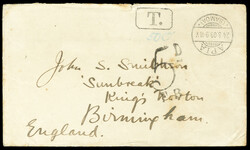 T.
APIA
5 D
John S. Smithson
"Sunbreak"
King's Norton
Birmingham.
England.